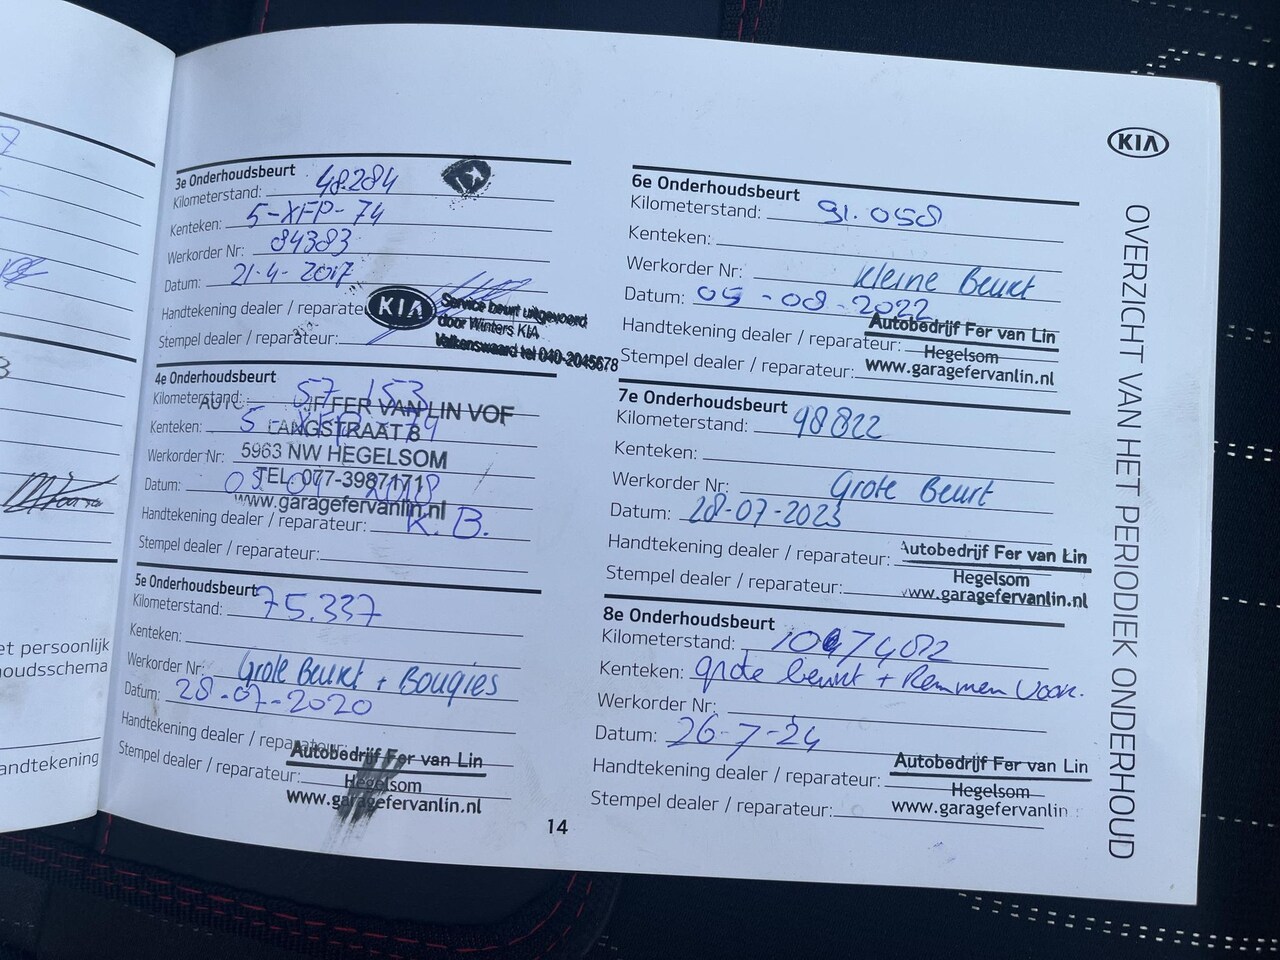 3e Onderhoudsbeurt
Kilometerstand: 48.284
Kenteken: 5-XFP-74
Werkorder Nr: 84383
Datum: 21-4-2017
Handtekening dealer / reparateur:
Stempel dealer / reparateur:
KIA
Service beurt uitgevoerd
door Winters KIA
Valkenswaard tel 040-2045678
4e Onderhoudsbeurt
Kilometerstand: 57.153
Kenteken: 5-XFP-74
Werkorder Nr:
Datum:
Handtekening dealer / reparateur: K.B.
Stempel dealer / reparateur:
FER VAN LIN VOF
LANGSTRAAT 8
5963 NW HEGELSOM
TEL. 077-3987171
www.garagefervanlin.nl
5e Onderhoudsbeurt
Kilometerstand: 75.337
Kenteken:
Werkorder Nr: Grote Beurt + Bougies
Datum: 28-07-2020
Handtekening dealer / reparateur:
Stempel dealer / reparateur:
Autobedrijf Fer van Lin
Hegelsom
www.garagefervanlin.nl
14
6e Onderhoudsbeurt
Kilometerstand: 91.058
Kenteken:
Werkorder Nr: Kleine Beurt
Datum: 05-08-2022
Handtekening dealer / reparateur:
Stempel dealer / reparateur:
Autobedrijf Fer van Lin
Hegelsom
www.garagefervanlin.nl
7e Onderhoudsbeurt
Kilometerstand: 98822
Kenteken:
Werkorder Nr: Grote Beurt
Datum: 28-07-2023
Handtekening dealer / reparateur:
Stempel dealer / reparateur:
Autobedrijf Fer van Lin
Hegelsom
www.garagefervanlin.nl
8e Onderhoudsbeurt
Kilometerstand:
Kenteken: grote beurt + Remmen voor.
Werkorder Nr:
Datum: 26-7-24
Handtekening dealer / reparateur:
Stempel dealer / reparateur:
Autobedrijf Fer van Lin
Hegelsom
www.garagefervanlin
KIA
OVERZICHT VAN HET PERIODIEK ONDERHOUD
et persoonlijk
oudsschema
andtekening